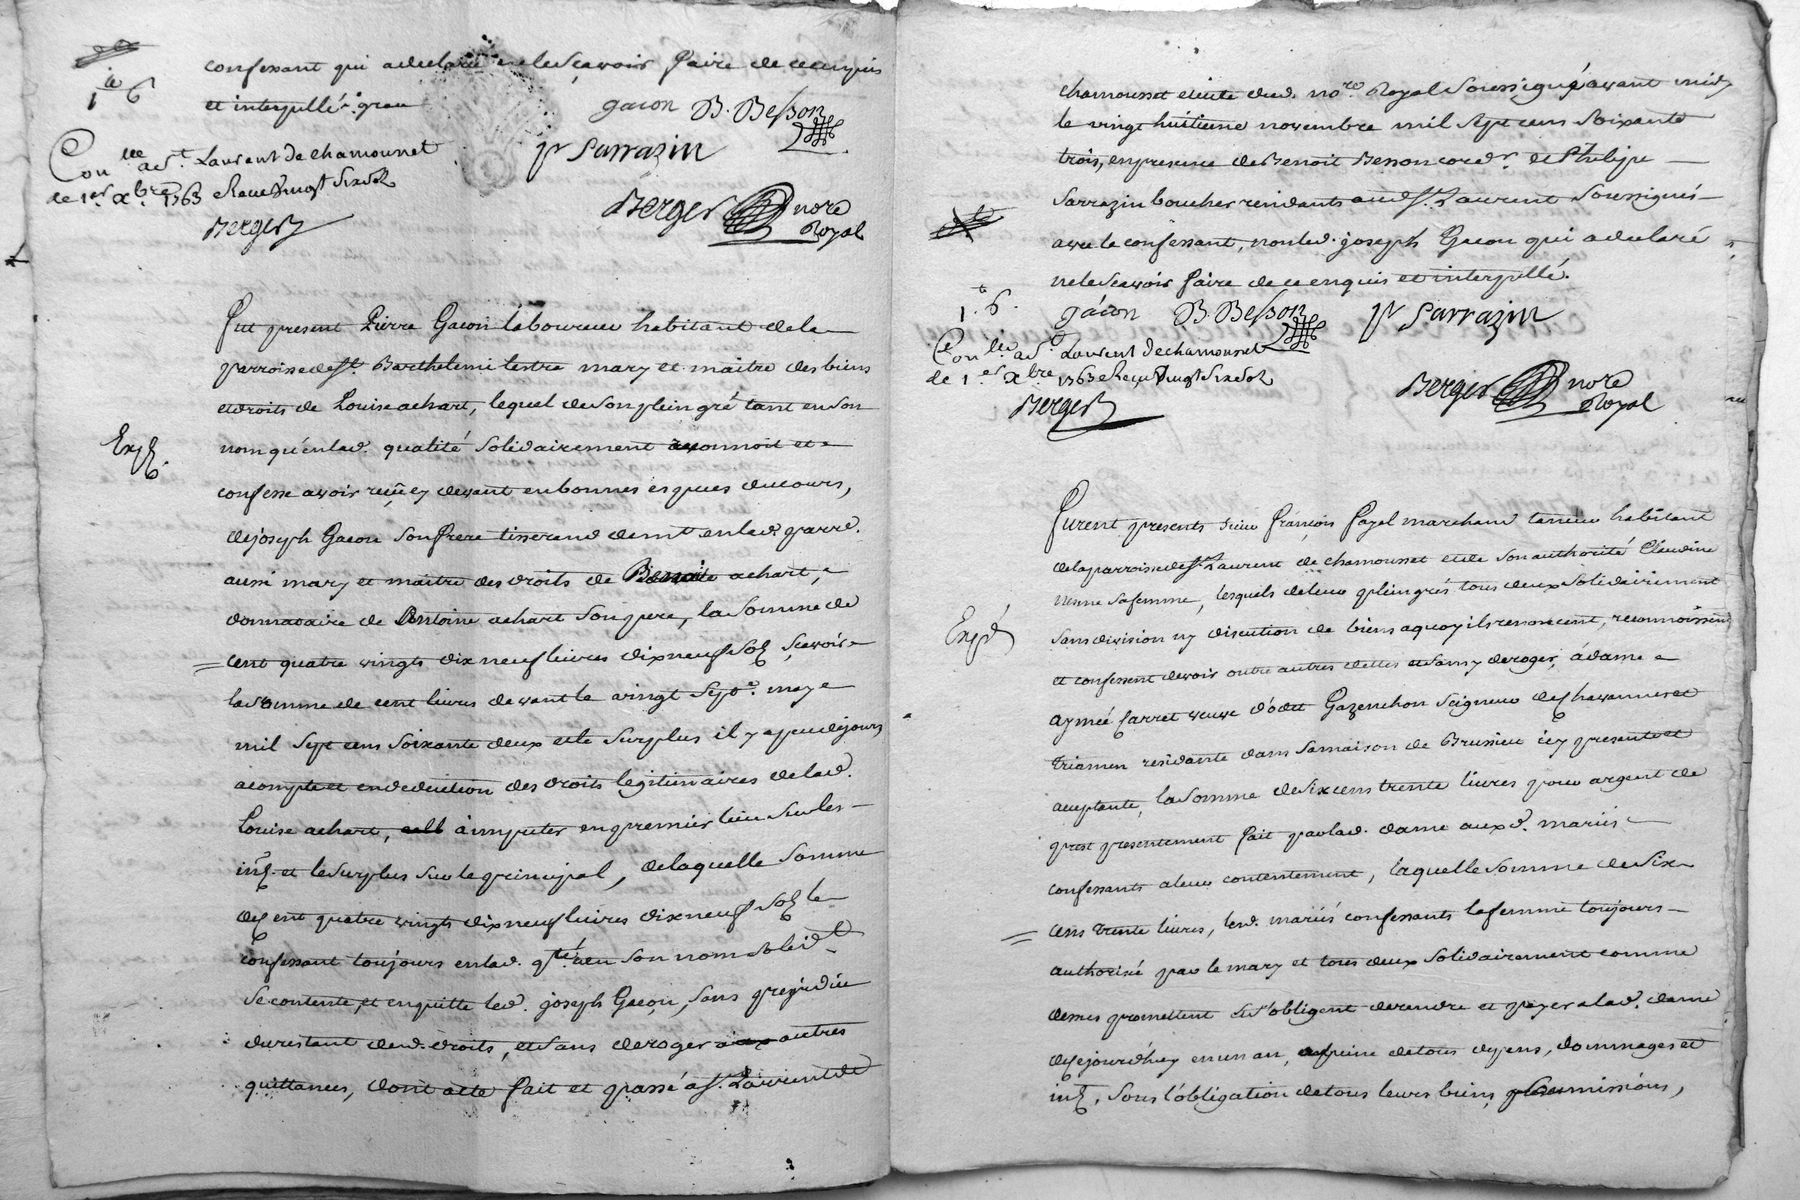 confessant qui a declaré ne le sçavoir faire de ce enquis
et interpellé
gacon B. Besson
1# 6
Conllé a St. Laurent de chamousset
p Sarrazin
le 1er. Xbre. 1763 et Receu vingt six sols
Berger
Berger nore Royal
Fut present Pierre Gacon laboureur habitant de la
parroisse de St. Barthelemi lestra mary et maitre des biens
et droits de Louise achart, lequel de son plein gré tant en son
Exp.
nom qu'en lad. qualité solidairement reconnoit et
confesse avoir reçû cy devant en bonnes especes du cours,
de joseph Gacon son frere tisserand demt. en lad. parre.
aussi mary et maitre des droits de Benoite achart,
donnataire de Antoine achart son pere, la somme de
cent quatre vingts dix neuf livres dix neuf sols, sçavoir
la somme de cent livres devant le vingt sept. may
mil sept cens soixante deux et le surplus il y a peu de jours
acompte et en deduction des droits legitimaires de lad.
Louise achart, à imputer en premier lieu sur les
int. et le surplus sur le principal, de laquelle somme
de cent quatre vingts dix neuf livres dix neuf sols le
confessant toujours en lad. qté. et en son nom solid.
se contente, et en quitte led. joseph Gacon, sans prejudice
du restant desd. droits, et sans deroger aux autres
quittances, dont acte fait et passé a St. Laurent de
chamousset etude dud. nore. Royal soussigné avant midy
le vingt huitieme novembre mil sept cens soixante
trois, en presence de Benoit Besson cordr. et Philipe
Sarrazin boucher residants aud. St. Laurent soussignés
avec le confessant, non led. joseph Gacon qui a declaré
ne le sçavoir faire de ce enquis et interpellé.
1# 6.
gacon B. Besson p Sarrazin
Conllé a St. Laurent de chamousset
le 1er. Xbre. 1763 et Reçu vingt six sols
Berger
Berger nore Royal
Furent presents sieur françois fayel marchand tanneur habitant
de la parroisse de St. Laurent de chamousset et de son authorité Claudine
sa femme, lesquels de leur plein gré tous deux solidairement
Expé
sans division ny discution de biens a quoy ils renoncent, reconnoissent
et confessent devoir outre autres dettes et sans y deroger, à dame
aymeé farret veuve d'odet Gazenchon Seigneur de chavannes et
Triamen residante dans sa maison de Brussieu icy presente et
acceptante, la somme de six cens trente livres pour argent de
prest presentement fait par lad. dame auxd. mariés
confessants a leur contentement, laquelle somme de six
cens trente livres, lesd. mariés confessants la femme toujours
authorisé par le mary et tous deux solidairement comme
dessus promettent et s'obligent de rendre et payer a lad. dame
de ce jourd'huy en un an, a peine de tous depens, dommages et
int. sous l'obligation de tous leurs biens, soumissions,